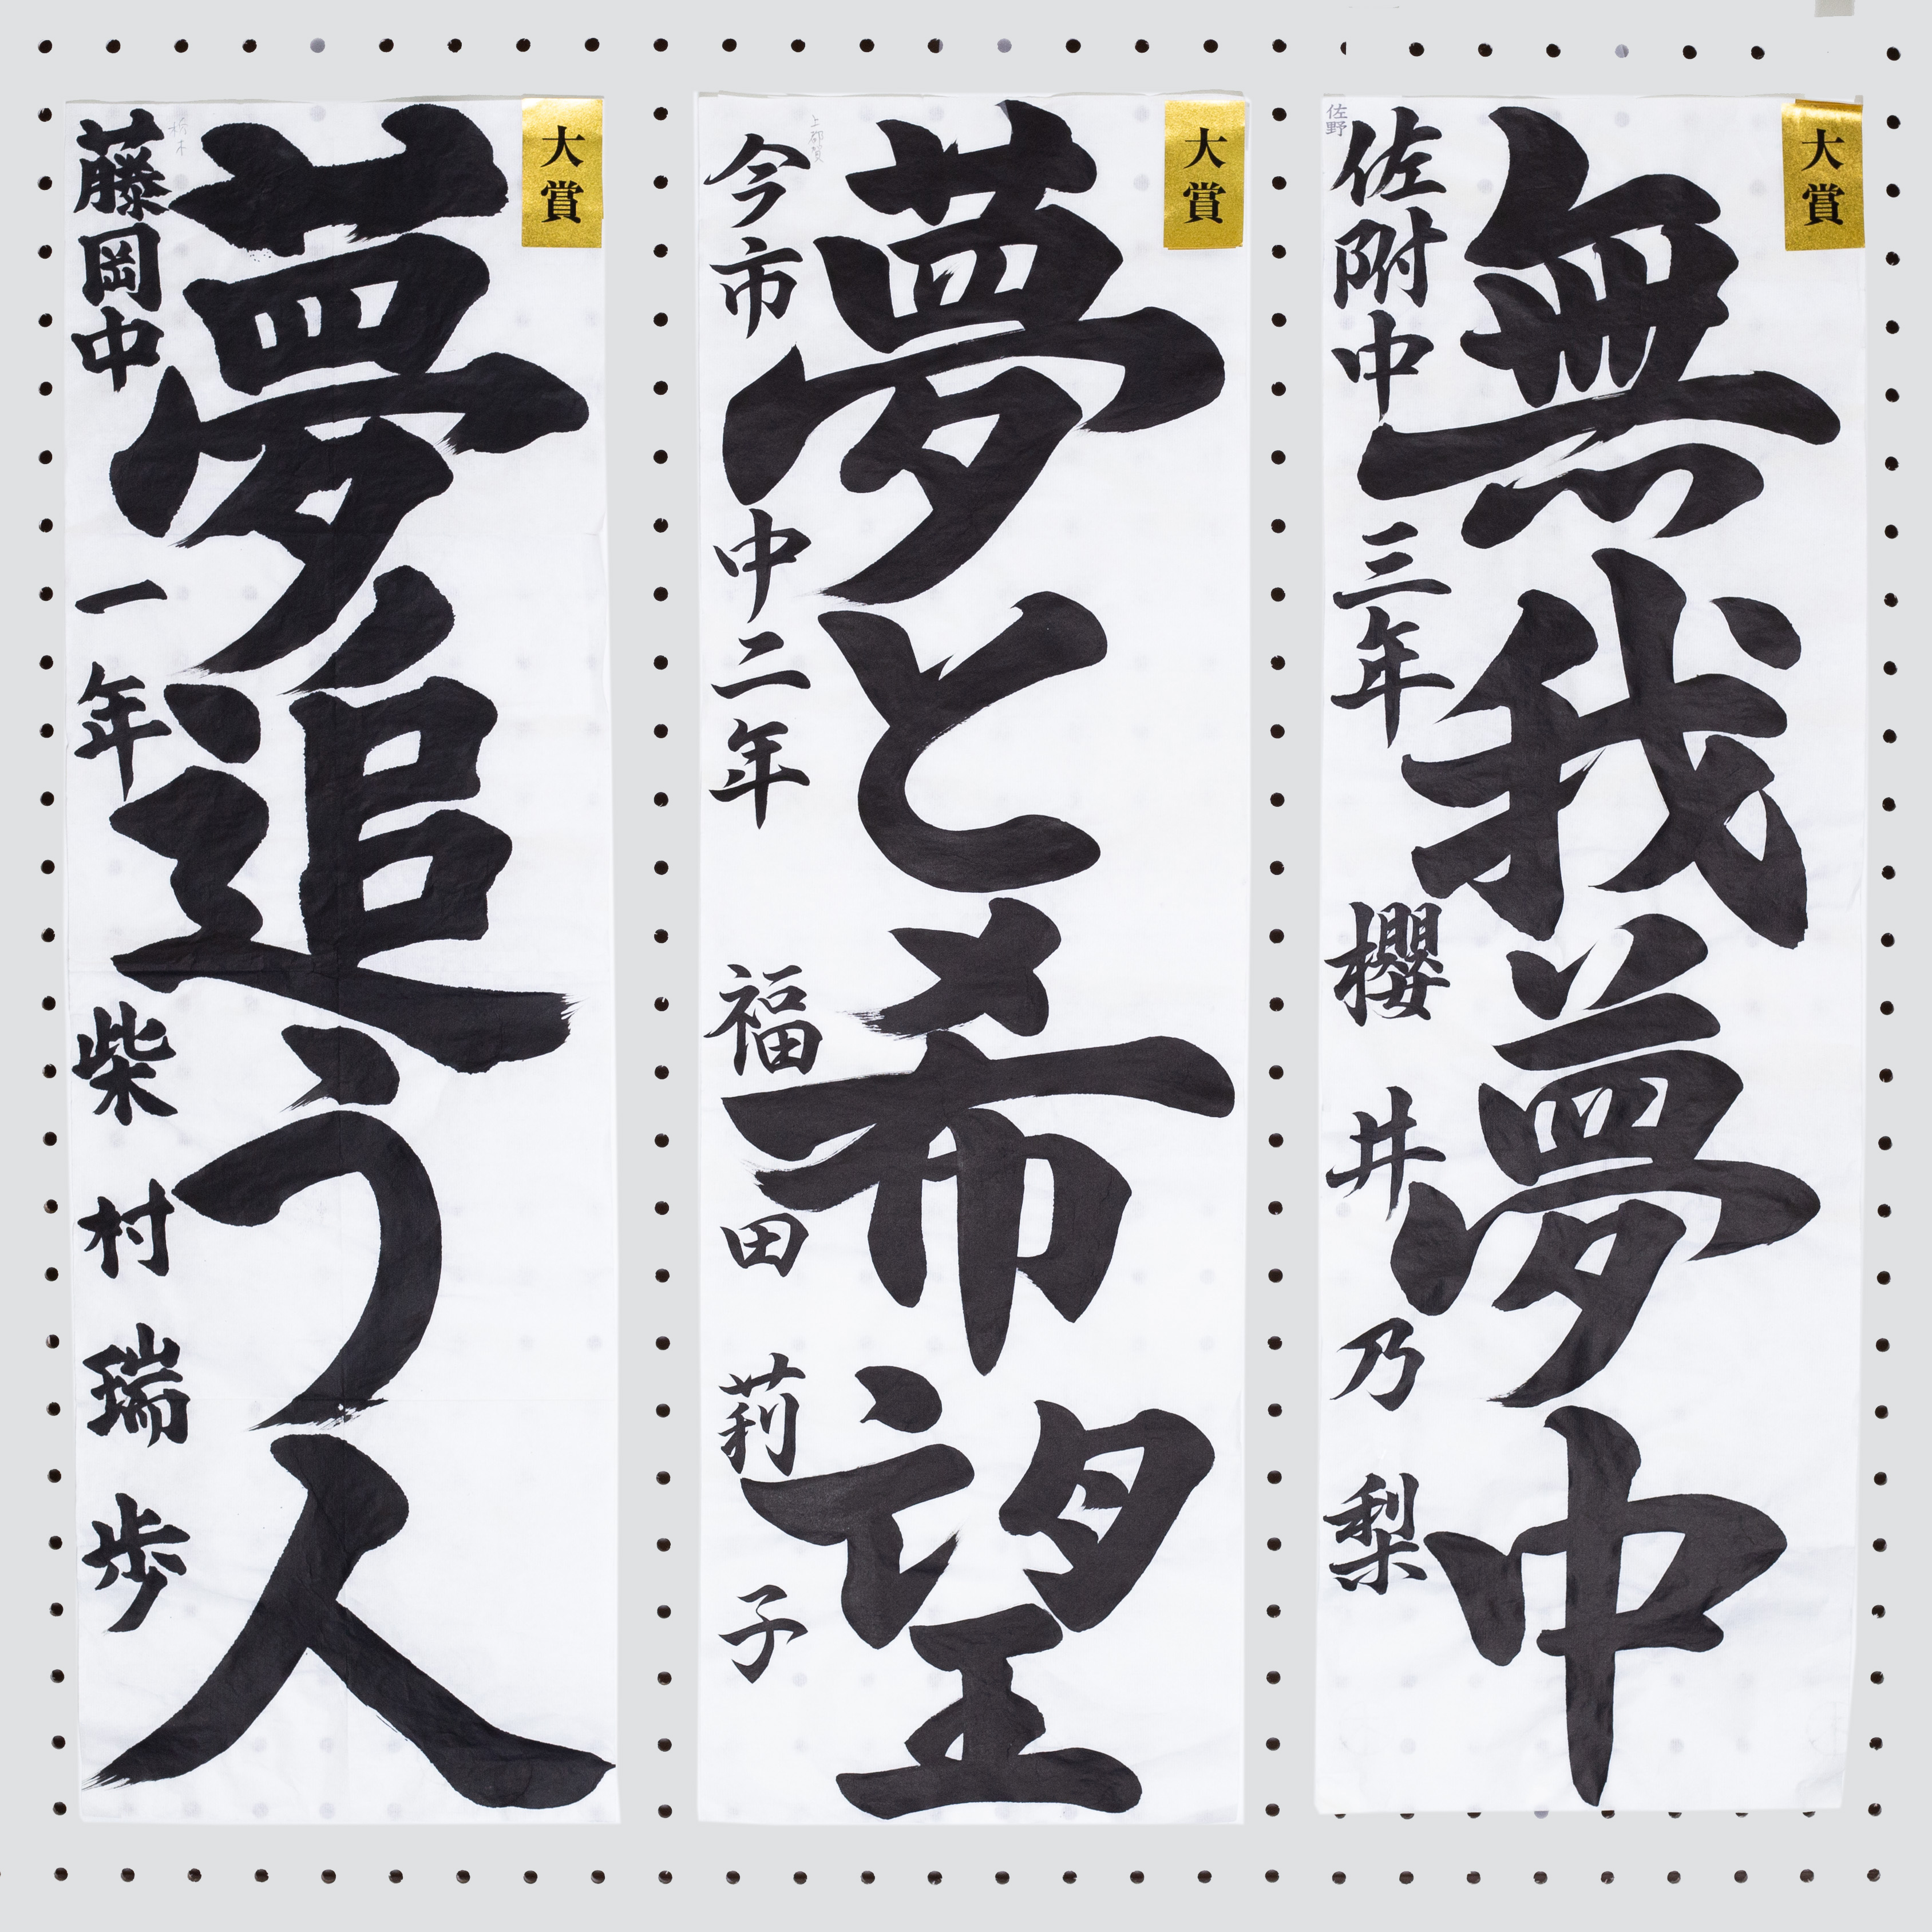 大賞
無我夢中
佐野
佐附中 三年 櫻井乃梨
大賞
夢と希望
上都賀
今市中二年 福田莉子
大賞
夢追う人
栃木
藤岡中 一年 柴村瑞歩